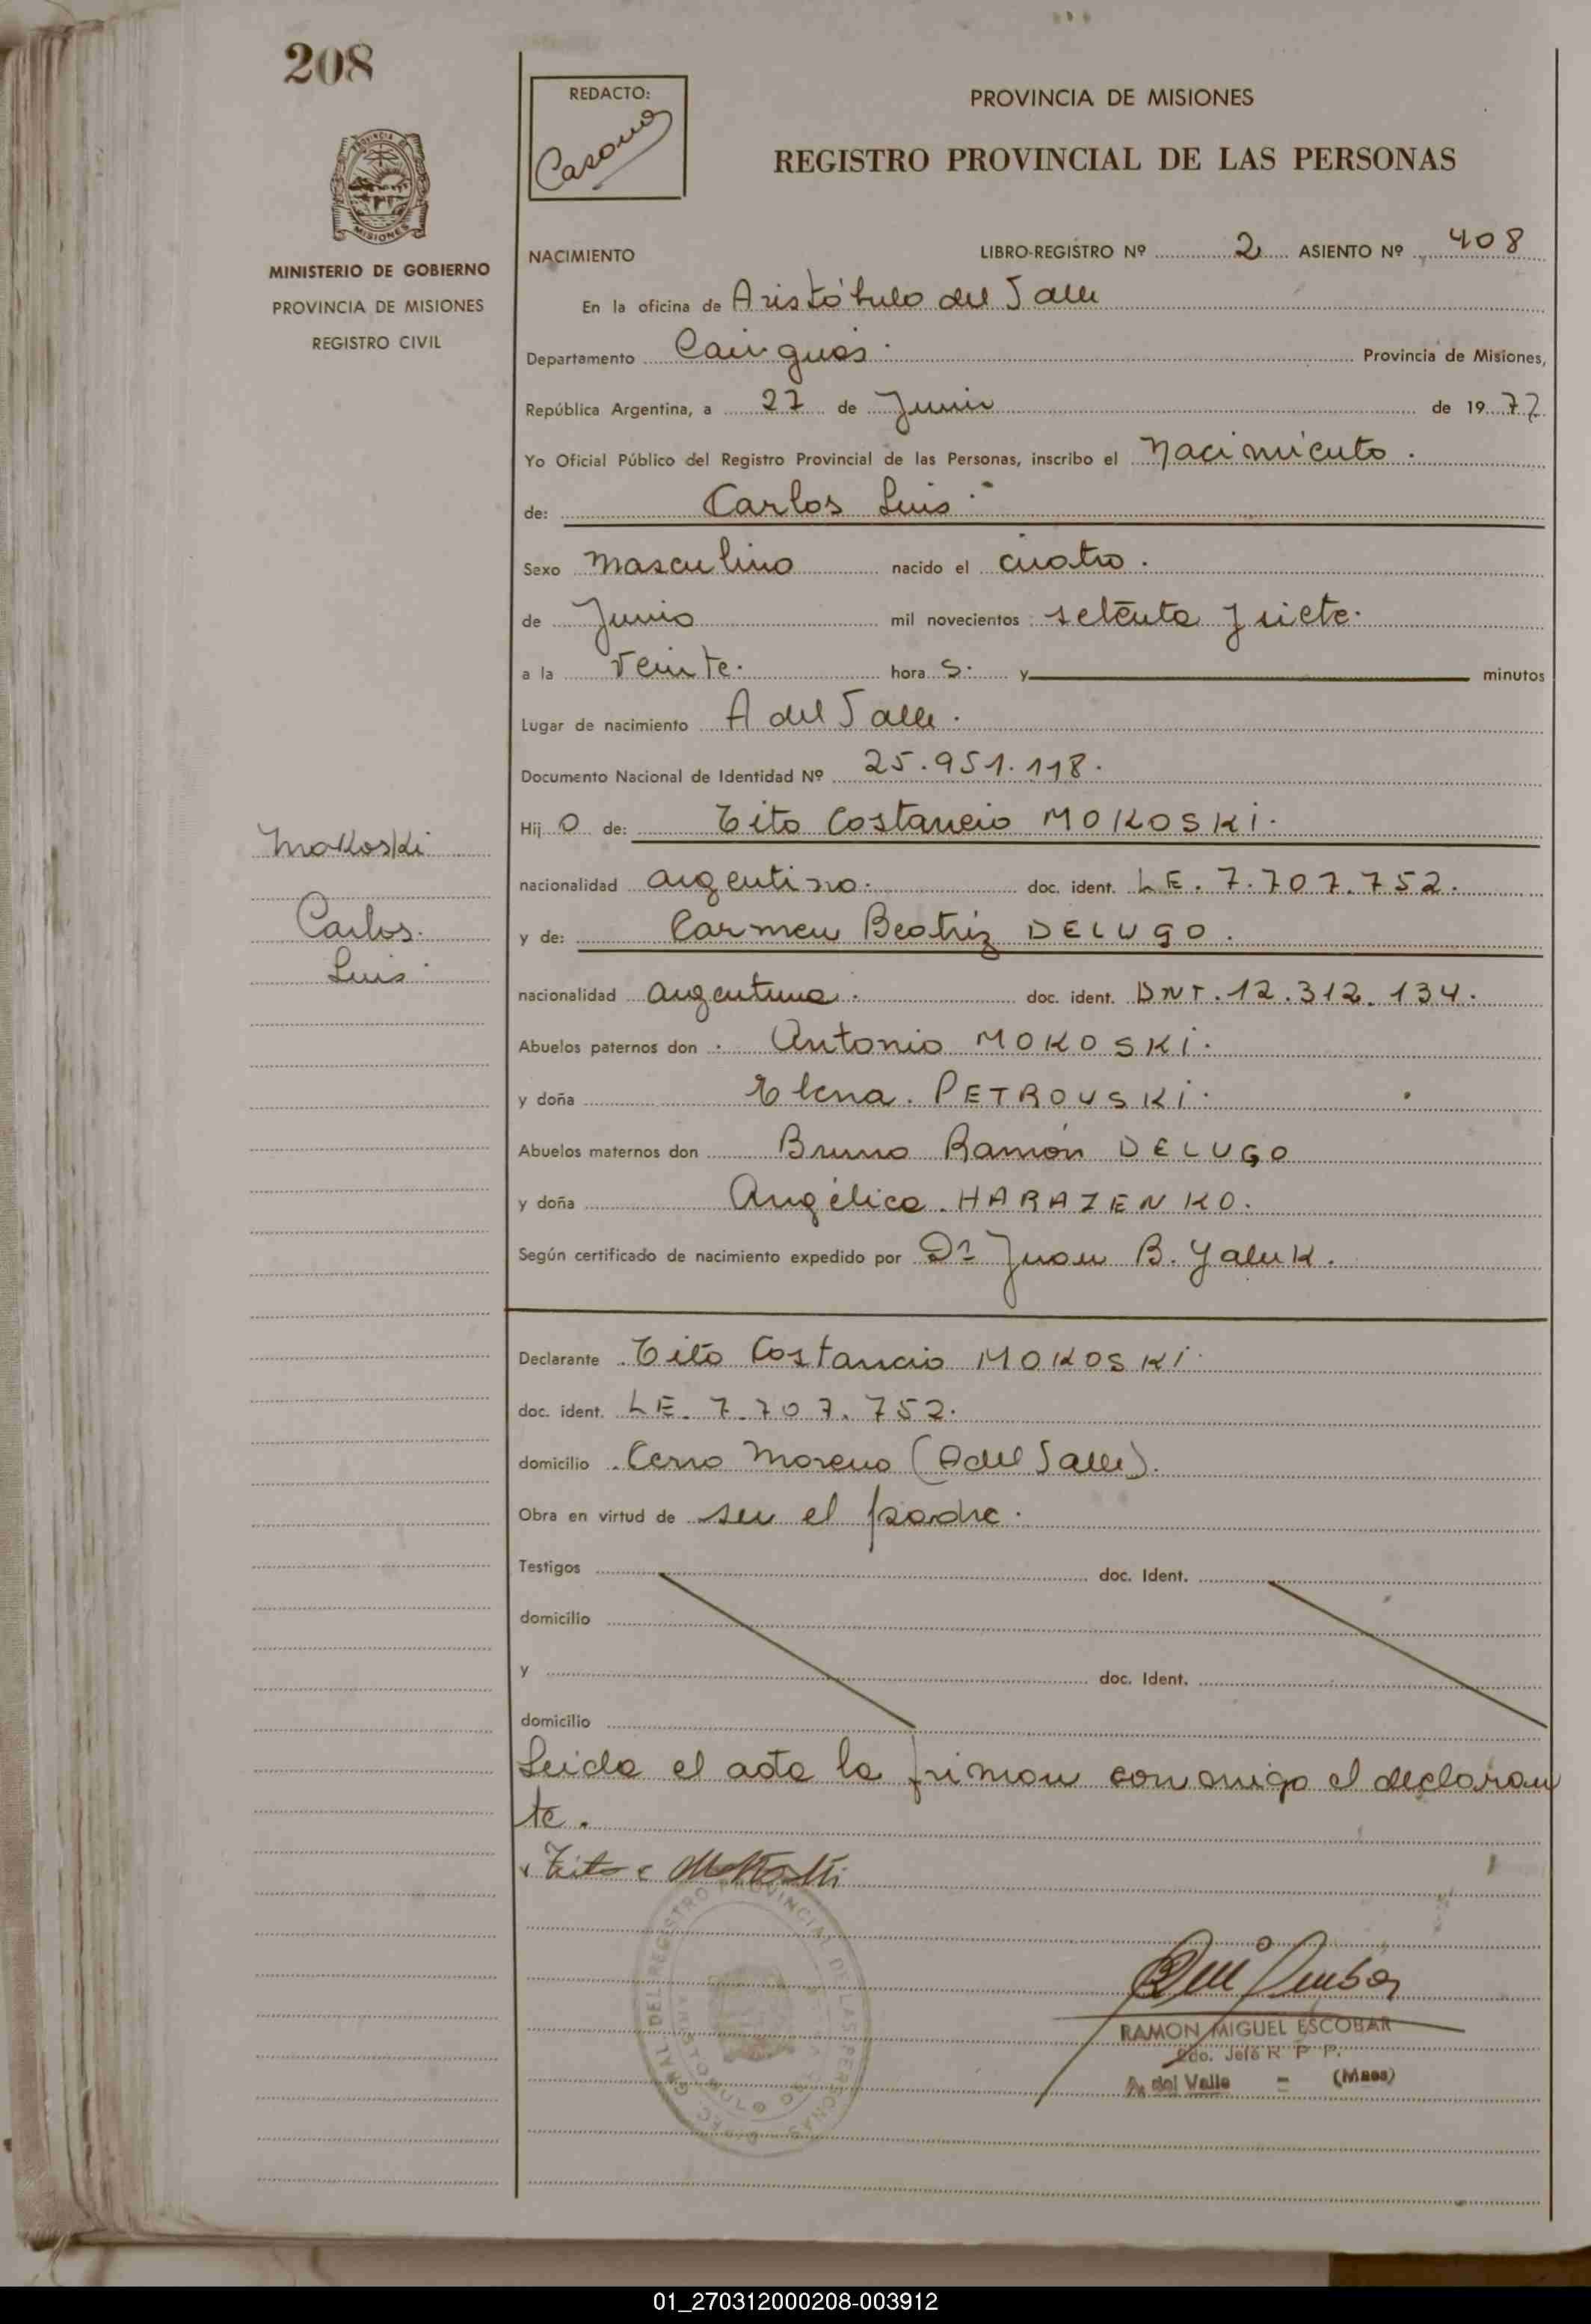 208
REDACTO:
Casona
PROVINCIA DE MISIONES
REGISTRO PROVINCIAL DE LAS PERSONAS
MISIONES
MINISTERIO DE GOBIERNO
PROVINCIA DE MISIONES
REGISTRO CIVIL
NACIMIENTO LIBRO-REGISTRO Nº 2 ASIENTO Nº 408
En la oficina de Aristóbulo del Valle
Departamento Cainguás. Provincia de Misiones,
República Argentina, a 27 de Junio de 1977
Yo Oficial Público del Registro Provincial de las Personas, inscribo el Nacimiento.
de: Carlos Luis.
Sexo masculino nacido el cuatro.
de Junio mil novecientos setenta y siete.
a la veinte. hora s. y minutos
Lugar de nacimiento A del Valle.
Documento Nacional de Identidad Nº 25.951.118.
Hij o de: Tito Costancio MOKOSKI.
nacionalidad argentino. doc. ident. LE. 7.707.752.
y de: Carmen Beatriz DELUGO.
nacionalidad argentina. doc. ident. DNI. 12.312.134.
Abuelos paternos don Antonio MOKOSKI.
y doña Elena. PETROVSKI.
Abuelos maternos don Bruno Ramón DELUGO
y doña Angélica. HARAZENKO.
Según certificado de nacimiento expedido por Dr Juan B. Yaluk.
Mokoski
Carlos.
Luis.
Declarante Tito Costancio MOKOSKI.
doc. ident. LE. 7.707.752.
domicilio Cerro Moreno (A del Valle).
Obra en virtud de ser el padre.
Testigos doc. Ident.
domicilio
y doc. Ident.
domicilio
Leida el acta la firman conmigo el declaran
te.
Tito C Mokoski
DIREC. GRAL DEL REGISTRO PROVINCIAL DE LAS PERSONAS
RAMON MIGUEL ESCOBAR
Edo. Jefe R P P.
A. del Valle = (Mnes)
01_270312000208-003912